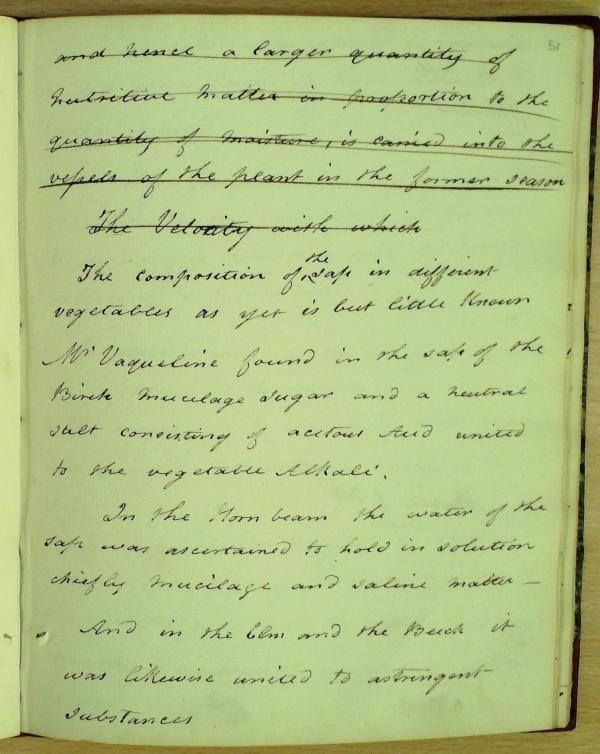 51
and hence a larger quantity of
nutritive matter in proportion to the
quantity of moisture, is carried into the
vessels of the plant in the former season
The Velocity with which
The composition of the sap in different
vegetables as yet is but little Known
Mr Vaqueline found in the sap of the
Birch mucilage sugar and a neutral
salt consisting of acetous Acid united
to the vegetable Alkali.
In the Horn beam the water of the
sap was ascertained to hold in solution
chiefly mucilage and saline matter —
And in the Elm and the Beech it
was likewise united to astringent
substances